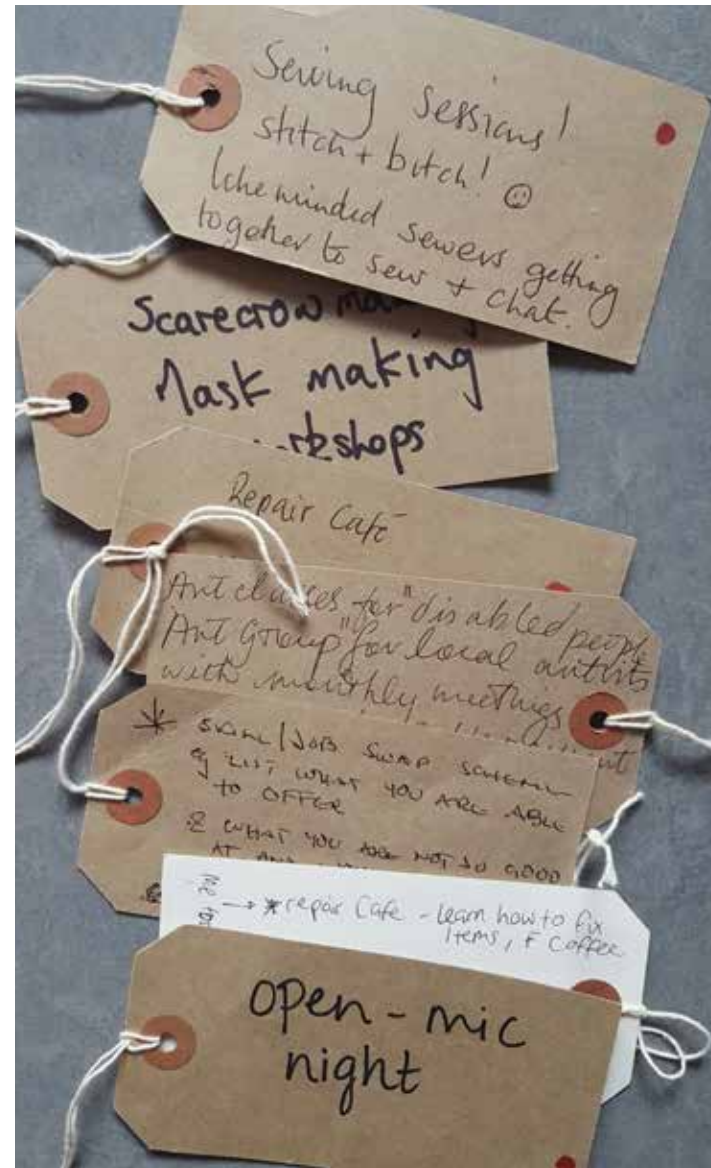 Sewing Sessions!
stitch + bitch! ☺
likeminded sewers getting
together to sew + chat.
Scarecrow
Mask making
Repair Café
Art classes for "disabled people
Art Group" for local artists
with monthly meetings
* SKILL / JOB SWAP SCHEME
eg LIST WHAT YOU ARE ABLE
TO OFFER
& WHAT YOU ARE NOT SO GOOD
AT AND
→ * repair Cafe - learn how to fix
items, + Coffee
open-mic
night